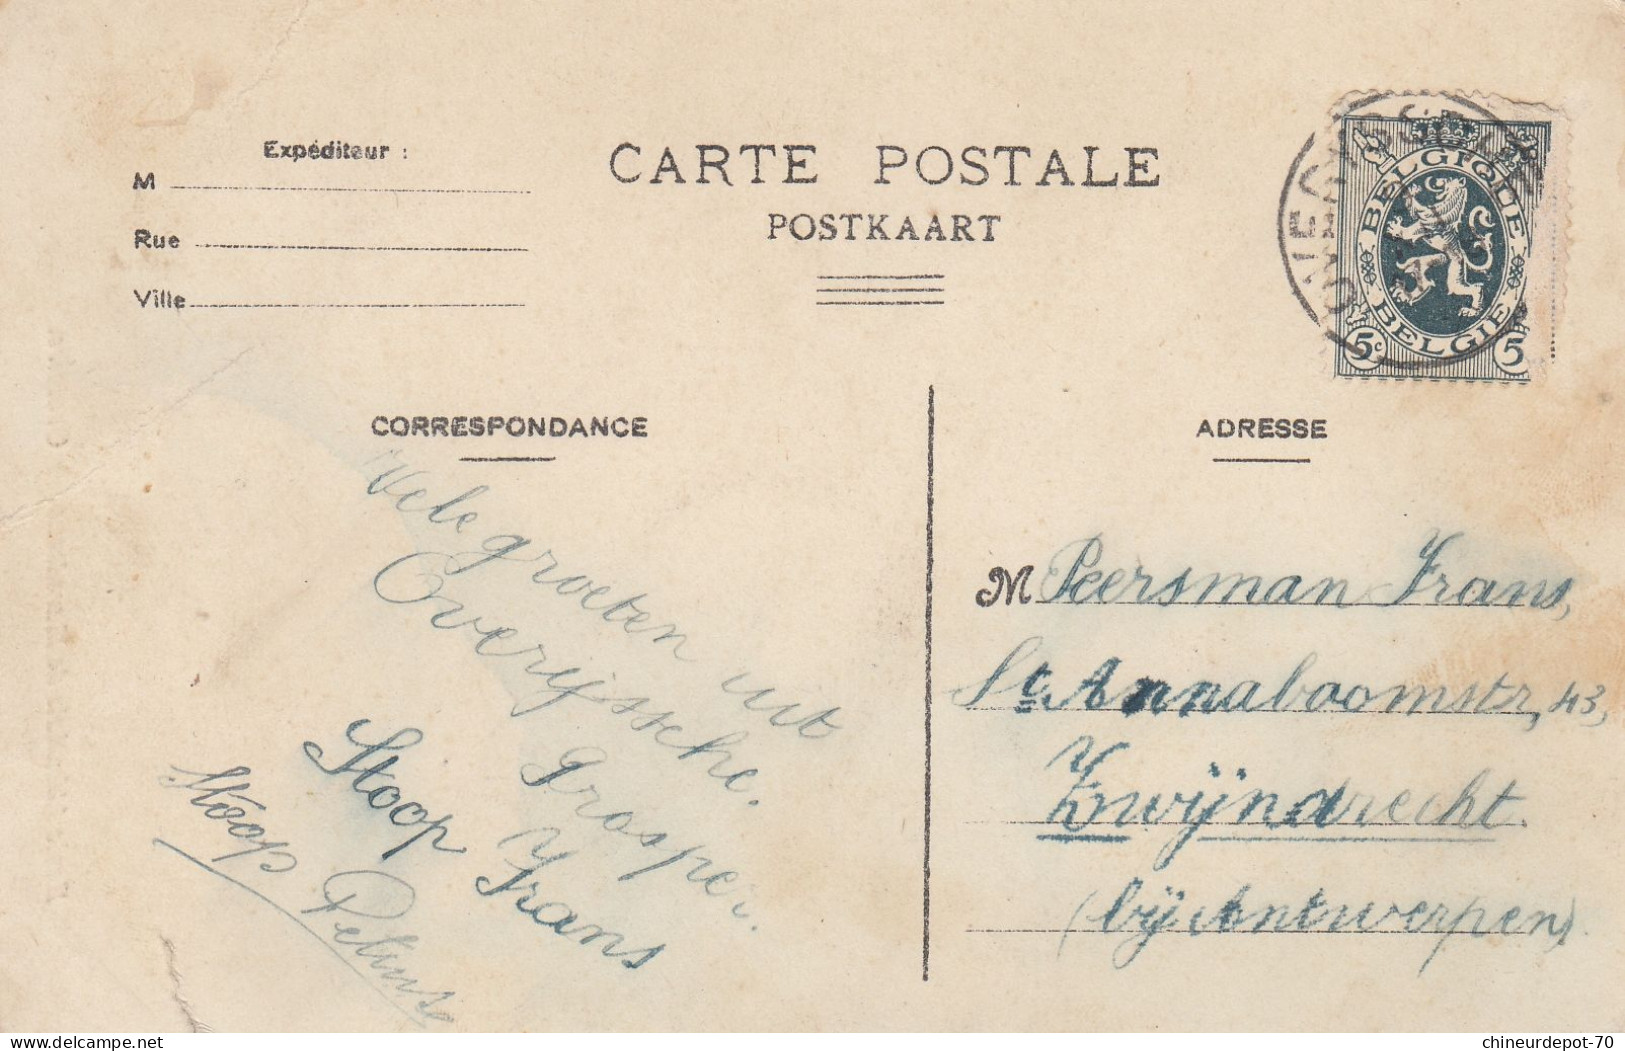 Expéditeur :
M
Rue
Ville
CARTE POSTALE
POSTKAART
BELGIQUE
BELGIE
5c 5
CORRESPONDANCE
Vele groeten uit
Overijssche.
Prosper.
Stoop Frans
Stoop
ADRESSE
M Peersman Frans,
St. Annaboomstr, 43,
Zwijndrecht.
(bij Antwerpen)
delcampe.net
chineurdepot-70